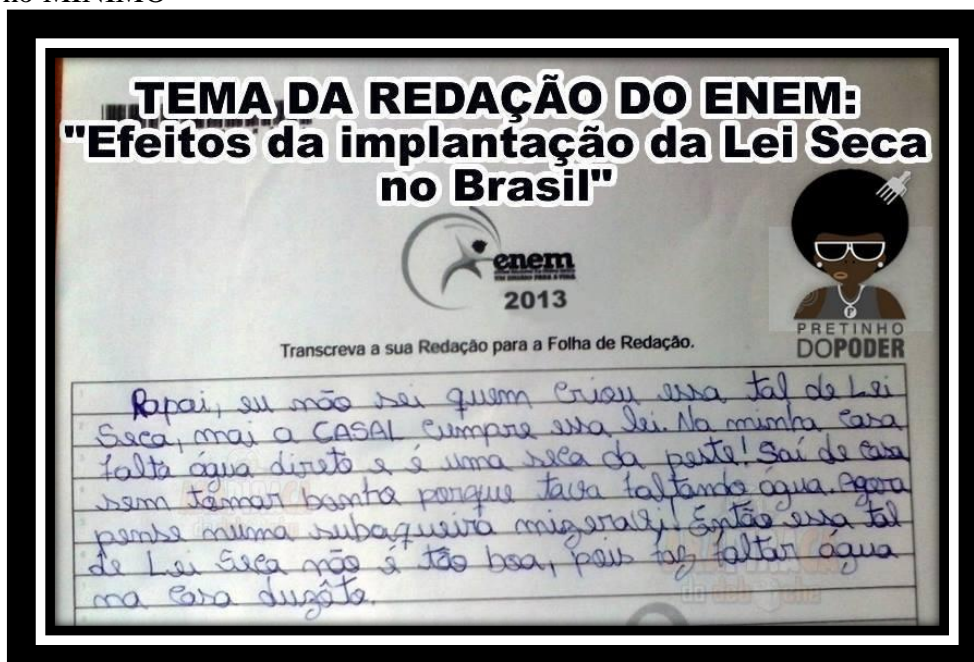 no MINIMO
TEMA DA REDAÇÃO DO ENEM:
"Efeitos da implantação da Lei Seca
no Brasil"
enem
2013
PRETINHO
DOPODER
Transcreva a sua Redação para a Folha de Redação.
Rapai, eu não sei quem criou essa tal de Lei
Seca, mai a CASAL cumpre essa lei. Na minha casa
falta água direto e é uma seca da peste! Saí de casa
sem tomar banho porque tava faltando água. Agora
pense numa subaqueira migeravi! Então essa tal
de Lei Seca não é tão boa, pois faz faltar água
na casa dugôto.